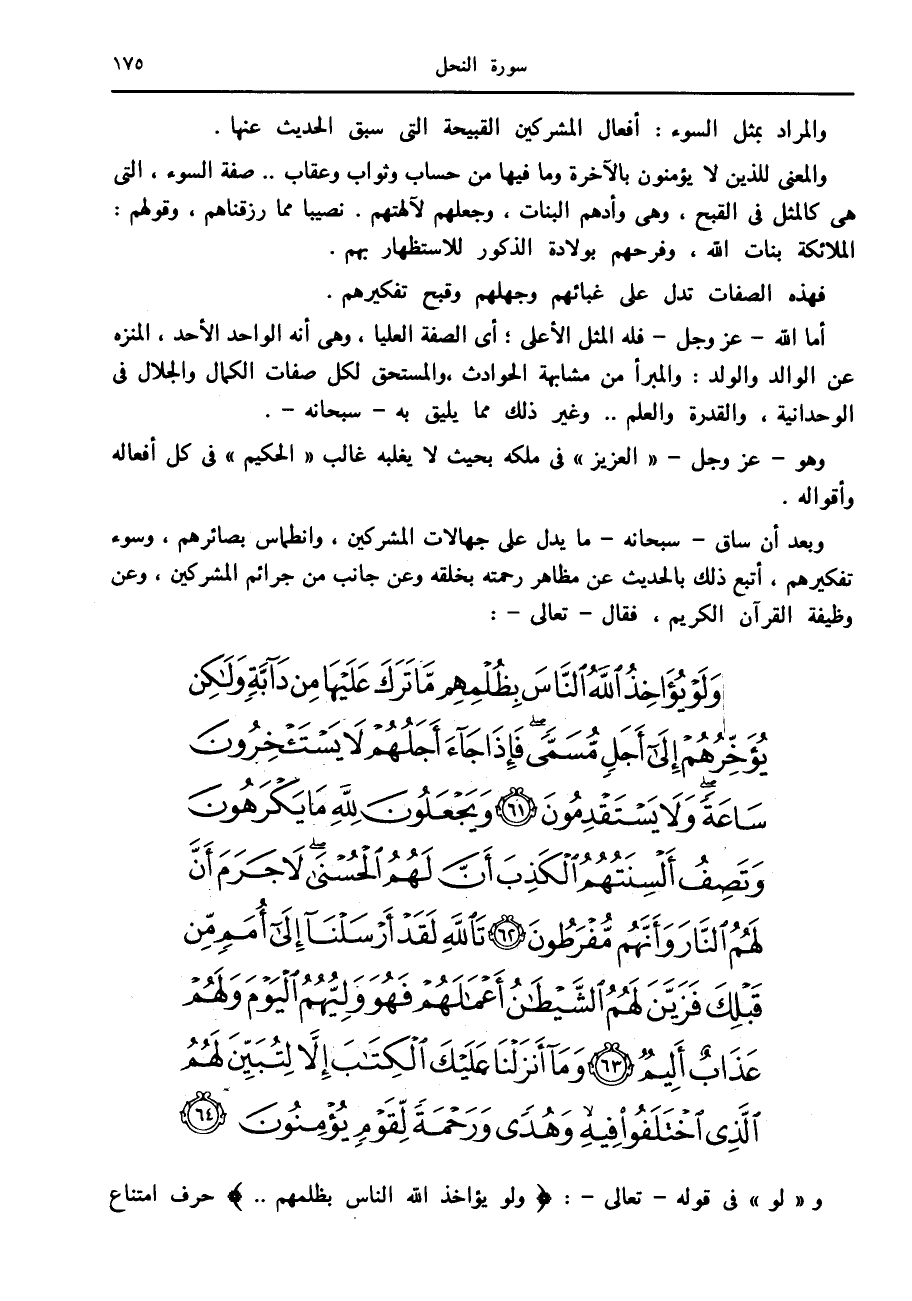 سورة النحل ١٧٥
والمراد بمثل السوء : أفعال المشركين القبيحة التى سبق الحديث عنها .
والمعنى للذين لا يؤمنون بالآخرة وما فيها من حساب وثواب وعقاب .. صفة السوء ، التى
هى كالمثل فى القبح ، وهى وأدهم البنات ، وجعلهم لآلهتهم . نصيبا مما رزقناهم ، وقولهم :
الملائكة بنات الله ، وفرحهم بولادة الذكور للاستظهار بهم .
فهذه الصفات تدل على غبائهم وجهلهم وقبح تفكيرهم .
أما الله – عز وجل – فله المثل الأعلى ؛ أى الصفة العليا ، وهى أنه الواحد الأحد ، المنزه
عن الوالد والولد : والمبرأ من مشابهة الحوادث ،والمستحق لكل صفات الكمال والجلال فى
الوحدانية ، والقدرة والعلم .. وغير ذلك مما يليق به – سبحانه – .
وهو – عز وجل – « العزيز » فى ملكه بحيث لا يغلبه غالب « الحكيم » فى كل أفعاله
وأقواله .
وبعد أن ساق – سبحانه – ما يدل على جهالات المشركين ، وانطماس بصائرهم ، وسوء
تفكيرهم ، أتبع ذلك بالحديث عن مظاهر رحمته بخلقه وعن جانب من جرائم المشركين ، وعن
وظيفة القرآن الكريم ، فقال – تعالى – :
وَلَوْ يُؤَاخِذُ ٱللَّهُ ٱلنَّاسَ بِظُلْمِهِم مَّا تَرَكَ عَلَيْهَا مِن دَآبَّةٍ وَلَٰكِن
يُؤَخِّرُهُمْ إِلَىٰٓ أَجَلٍ مُّسَمًّى ۖ فَإِذَا جَآءَ أَجَلُهُمْ لَا يَسْتَـْٔخِرُونَ
سَاعَةً ۖ وَلَا يَسْتَقْدِمُونَ ۝٦١ وَيَجْعَلُونَ لِلَّهِ مَا يَكْرَهُونَ
وَتَصِفُ أَلْسِنَتُهُمُ ٱلْكَذِبَ أَنَّ لَهُمُ ٱلْحُسْنَىٰ ۖ لَا جَرَمَ أَنَّ
لَهُمُ ٱلنَّارَ وَأَنَّهُم مُّفْرَطُونَ ۝٦٢ تَٱللَّهِ لَقَدْ أَرْسَلْنَآ إِلَىٰٓ أُمَمٍ مِّن
قَبْلِكَ فَزَيَّنَ لَهُمُ ٱلشَّيْطَٰنُ أَعْمَٰلَهُمْ فَهُوَ وَلِيُّهُمُ ٱلْيَوْمَ وَلَهُمْ
عَذَابٌ أَلِيمٌ ۝٦٣ وَمَآ أَنزَلْنَا عَلَيْكَ ٱلْكِتَٰبَ إِلَّا لِتُبَيِّنَ لَهُمُ
ٱلَّذِى ٱخْتَلَفُوا۟ فِيهِ ۙ وَهُدًى وَرَحْمَةً لِّقَوْمٍ يُؤْمِنُونَ ۝٦٤
و « لو » فى قوله – تعالى – : ﴿ ولو يؤاخذ الله الناس بظلمهم .. ﴾ حرف امتناع